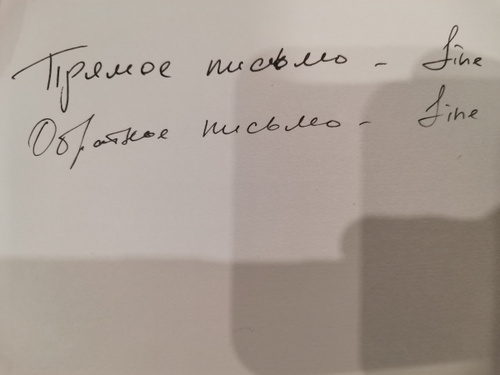 Прямое письмо - fine
Обратное письмо - fine